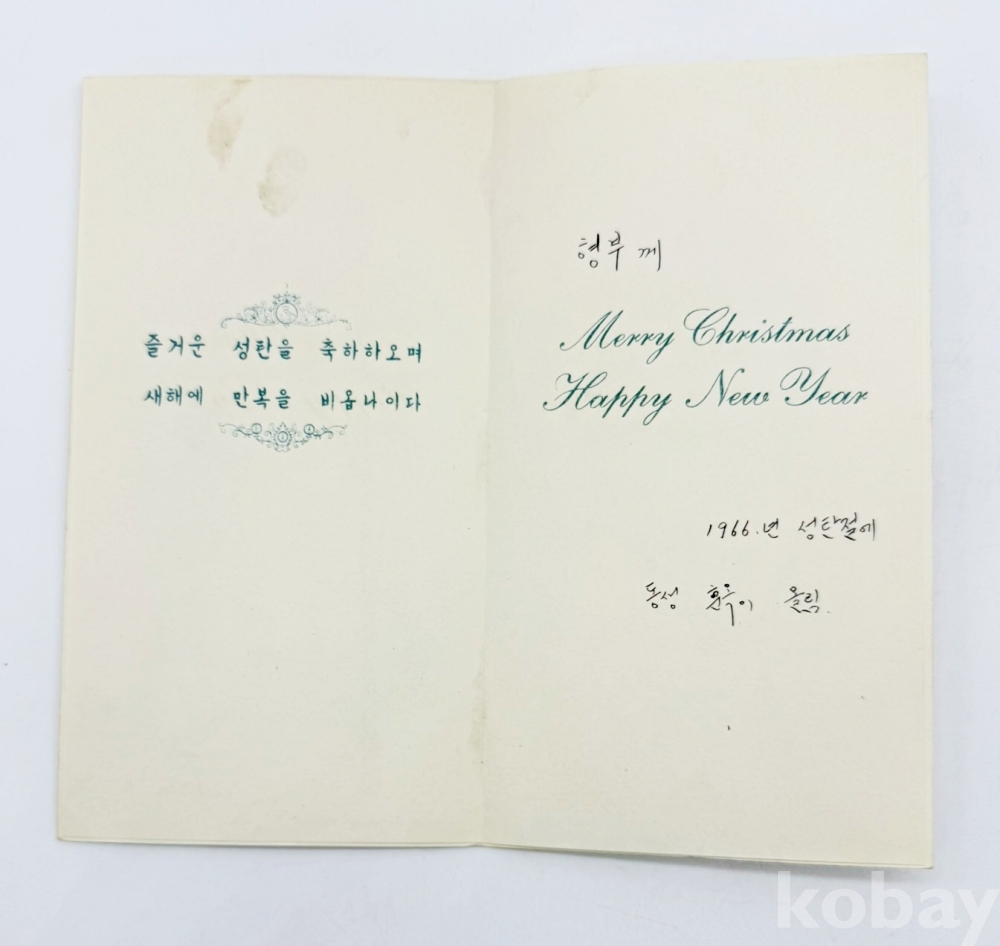 즐거운 성탄을 축하하오며
새해에 만복을 비옵나이다
형부께
Merry Christmas
Happy New Year
1966.년 성탄절에
동성 올림.
kobay